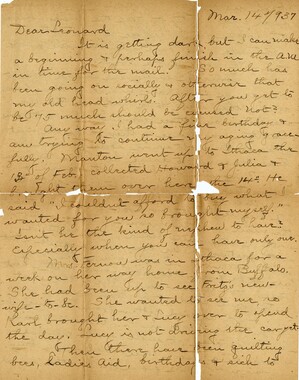 Mar. 14 1937
Dear Leonard
It is getting dark but I can make
a beginning & perhaps finish in the A.M.
in time for the mail. So much has
been going on socially & otherwise that
my old head whirls. After you get to
be 75 much should be excused. Not?
Any way I had a fine birthday & 
am trying to continue my aging grace
fully. Manton went up to Ithaca the
of Feb. collected Howard & Julia &
them over here the 14th He
said "I couldn't afford to give what I
wanted for you so brought myself."
Isn't he the kind of nephew to have?
Especially when you can have only one.
Mrs. Fernow was in Ithaca for a
week on her way home from Buffalo.
She had been up to see Fritz's new
wife to be. She wanted to see me so
Karl brought her & Lucy over to spend
the day. Lucy is not driving the car yet.
Then there have been quilting
bees, Ladies Aid, birthdays & sick to